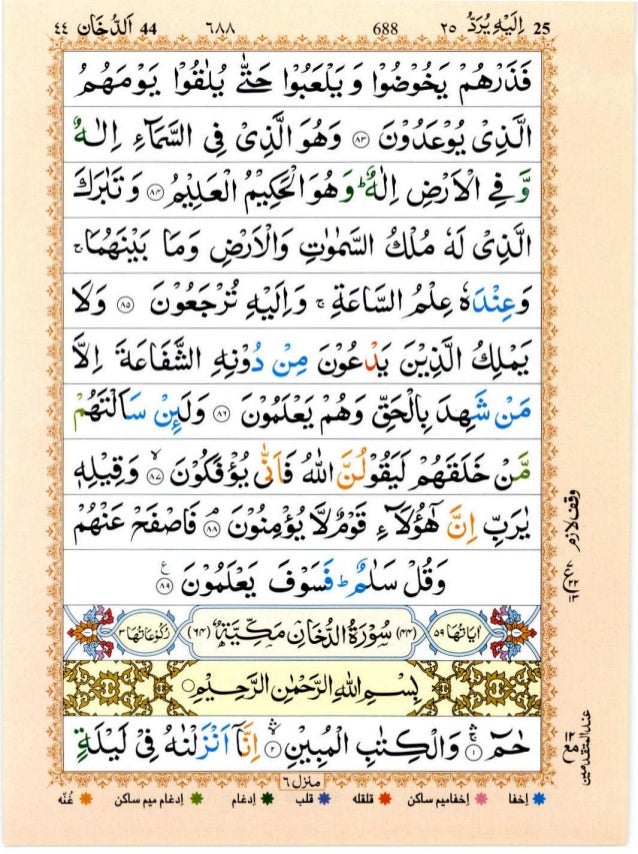 25 اِلَيْهِ يُرَدُّ ٢٥ 688 ٦٨٨ 44 اَلدُّخَان ٤٤
فَذَرْهُمْ يَخُوْضُوْا وَ يَلْعَبُوْا حَتّٰى يُلٰقُوْا يَوْمَهُمُ
الَّذِىْ يُوْعَدُوْنَ ۝۸۳ وَهُوَ الَّذِىْ فِى السَّمَآءِ اِلٰهٌ
وَّفِى الْاَرْضِ اِلٰهٌ ؕ وَهُوَ الْحَكِيْمُ الْعَلِيْمُ ۝۸۴ وَ تَبٰرَكَ
الَّذِىْ لَهٗ مُلْكُ السَّمٰوٰتِ وَالْاَرْضِ وَمَا بَيْنَهُمَا ۚ
وَعِنْدَهٗ عِلْمُ السَّاعَةِ ۚ وَاِلَيْهِ تُرْجَعُوْنَ ۝۸۵ وَلَا
يَمْلِكُ الَّذِيْنَ يَدْعُوْنَ مِنْ دُوْنِهِ الشَّفَاعَةَ اِلَّا
مَنْ شَهِدَ بِالْحَقِّ وَهُمْ يَعْلَمُوْنَ ۝۸۶ وَلَئِنْ سَاَلْتَهُمْ
مَّنْ خَلَقَهُمْ لَيَقُوْلُنَّ اللّٰهُ فَاَنّٰى يُؤْفَكُوْنَ ۙ‏۝۸۷ وَقِيْلِهٖ
يٰرَبِّ اِنَّ هٰٓؤُلَآءِ قَوْمٌ لَّا يُؤْمِنُوْنَ ۘ‏۝۸۸ فَاصْفَحْ عَنْهُمْ
وَقُلْ سَلٰمٌ ؕ فَسَوْفَ يَعْلَمُوْنَ ۝۸۹ ع
وقف لازم
اٰيَاتُهَا ٥٩ (٤٤) سُوْرَةُ الدُّخَانِ مَكِّيَّةٌ (٦٤) رُكُوْعَاتُهَا ٣
بِسْمِ اللّٰهِ الرَّحْمٰنِ الرَّحِيْمِ
حٰمٓ ۝۱ وَالْكِتٰبِ الْمُبِيْنِ ۝۲ اِنَّاۤ اَنْزَلْنٰهُ فِىْ لَيْلَةٍ
منزل ٦
اِخفا اِخفامیم ساکن قلقله قلب اِدغام اِدغام میم ساکن غُنّه